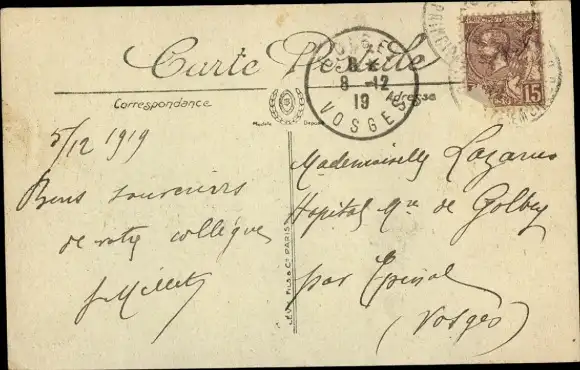 Carte Postale
Correspondance
Adresse
8 -12
19
VOSGES
15
Modèle Déposé
LÉVY FILS & Cie PARIS
5/12 1919
Bons souvenirs
de votre collègue
J Millet
Mademoiselle Lazarus
Hopital Mre de Golbey
par Epinal
(Vosges)